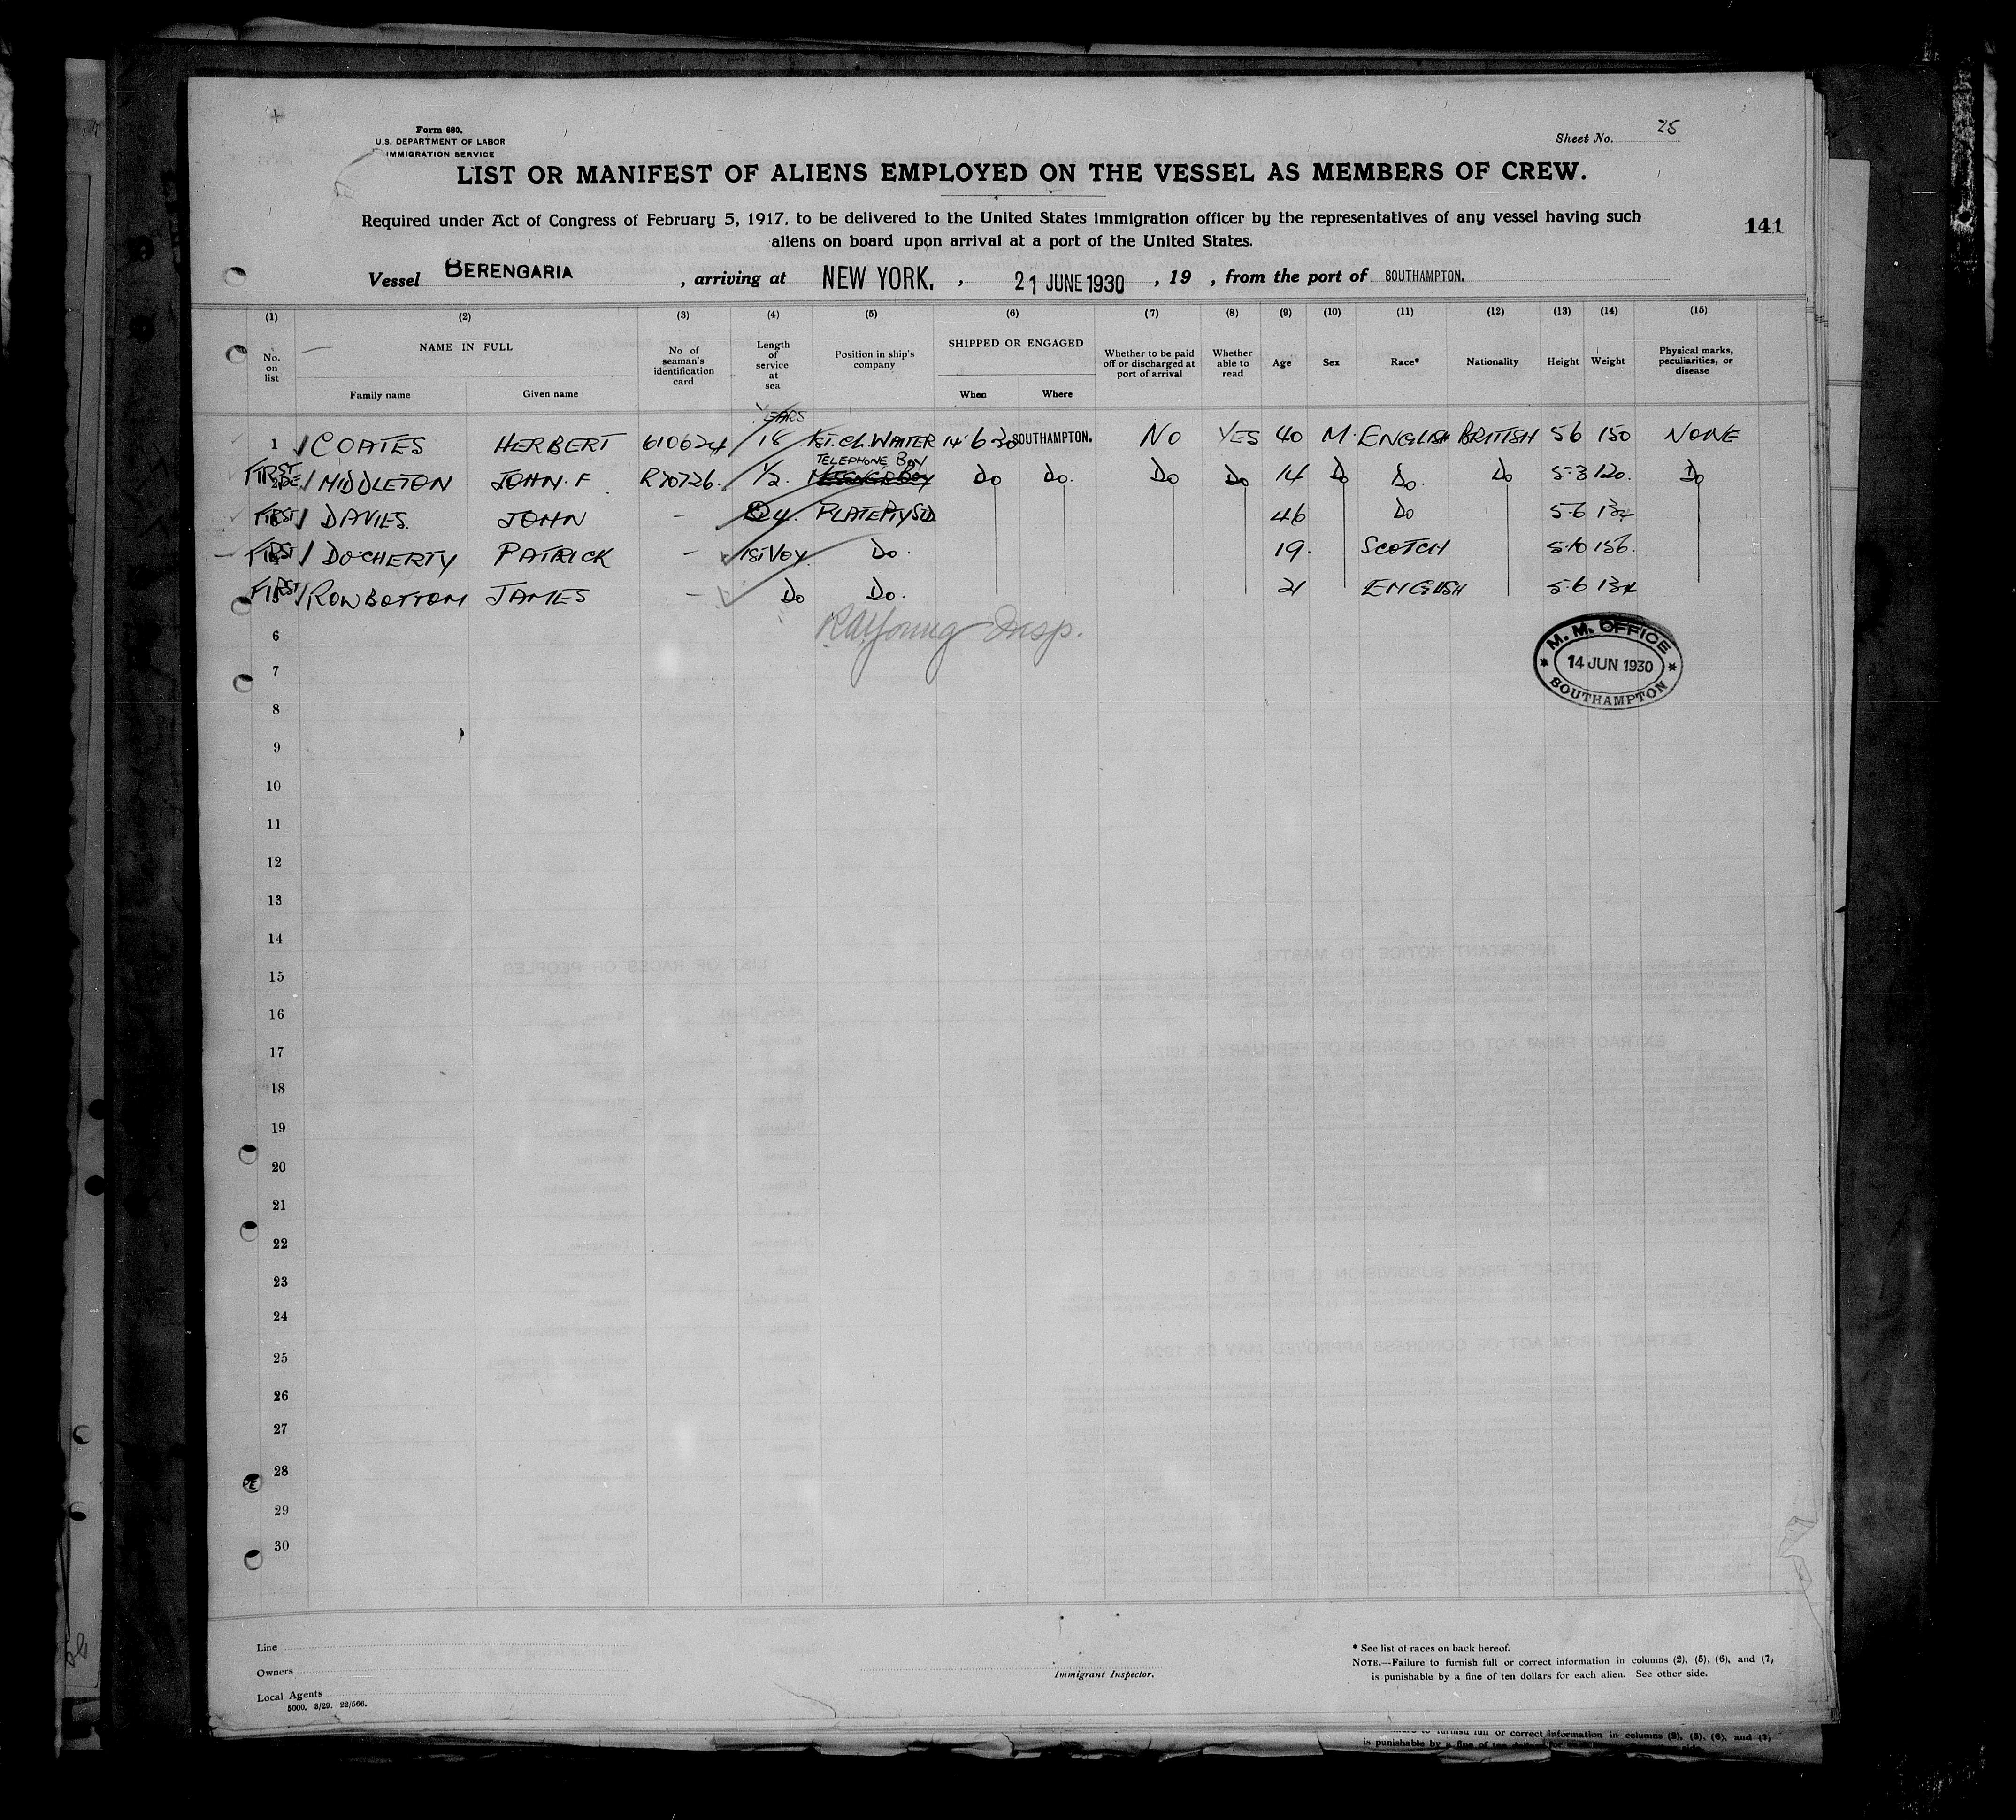 Form 680.
U.S. DEPARTMENT OF LABOR
IMMIGRATION SERVICE
Sheet No. 25
LIST OR MANIFEST OF ALIENS EMPLOYED ON THE VESSEL AS MEMBERS OF CREW.
Required under Act of Congress of February 5, 1917, to be delivered to the United States immigration officer by the representatives of any vessel having such
aliens on board upon arrival at a port of the United States.
141
Vessel BERENGARIA, arriving at NEW YORK., 21 JUNE 1930, 19 , from the port of SOUTHAMPTON.
(1) (2) (3) (4) (5) (6) (7) (8) (9) (10) (11) (12) (13) (14) (15)
No. on list
NAME IN FULL
Family name
Given name
No of seaman's identification card
Length of service at sea
Position in ship's company
SHIPPED OR ENGAGED
When
Where
Whether to be paid off or discharged at port of arrival
Whether able to read
Age
Sex
Race*
Nationality
Height
Weight
Physical marks, peculiarities, or disease
YEARS
1 COATES HERBERT 610624 18 1ST. CL. WAITER 14 6 30 SOUTHAMPTON. NO YES 40 M. ENGLISH BRITISH 56 150 NONE
TELEPHONE BOY
FIRST MIDDLETON JOHN. F R70726. 1/2. Do Do. Do Do 14 Do Do. Do 5-3 120. Do
FIRST DAVIES. JOHN - 4. 46 Do 5-6
FIRST DOCHERTY PATRICK - 1ST VOY Do. 19. SCOTCH 5-10 156.
FIRST ROWBOTTOM JAMES - Do Do. 21 ENGLISH 5-6 134
6
R A Young Insp.
M. M. OFFICE
14 JUN 1930
SOUTHAMPTON
7
8
9
10
11
12
13
14
15
16
17
18
19
20
21
22
23
24
25
26
27
28
29
30
Line
Owners
Local Agents
5000. 3/29. 22/566.
Immigrant Inspector.
* See list of races on back hereof.
NOTE.—Failure to furnish full or correct information in columns (2), (5), (6), and (7,
is punishable by a fine of ten dollars for each alien. See other side.
full or correct information in columns (2), (5), (6), and (7,
is punishable by a fine of ten